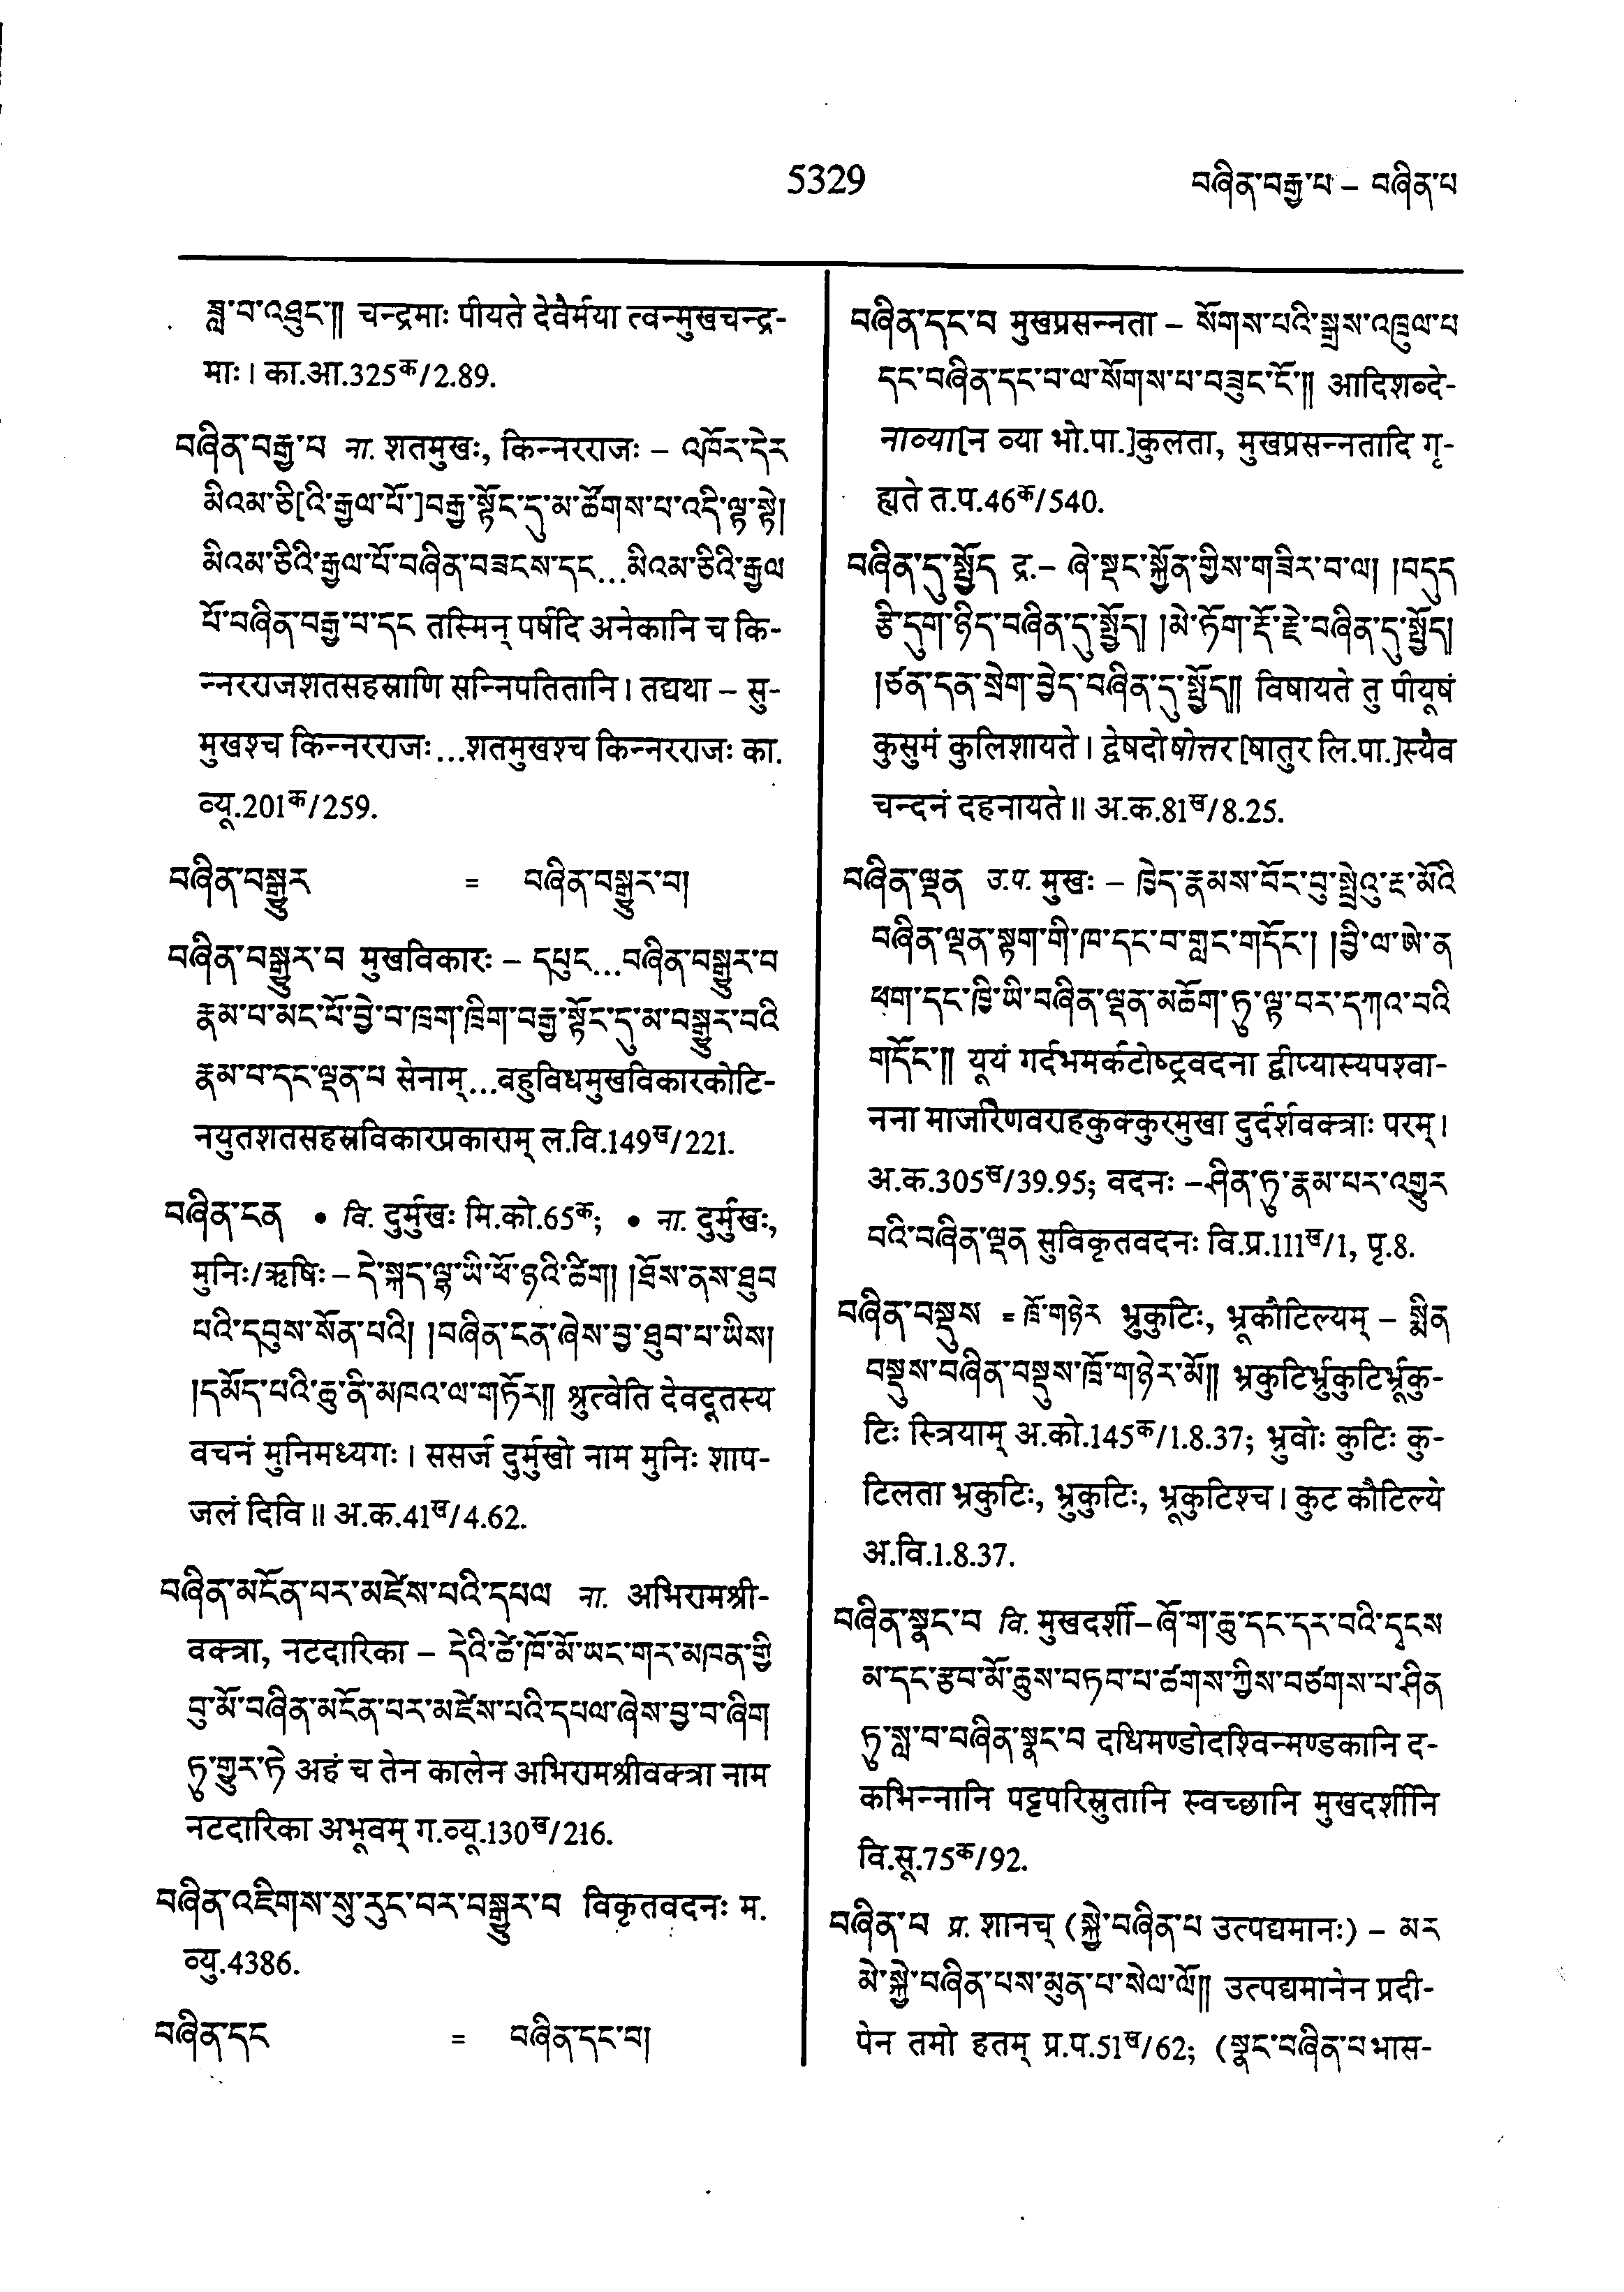 5329
བཞིན་བརྒྱ་པ – བཞིན་པ
ཟླ་བ་འཐུང་༎ चन्द्रमाः पीयते देवैर्मया त्वन्मुखचन्द्र-
माः। का.आ.325क/2.89.
བཞིན་བརྒྱ་པ ना. शतमुखः, किन्नरराजः – འཁོར་དེར
མིའམ་ཅི[འི་རྒྱལ་པོ་]བརྒྱ་སྟོང་དུ་མ་ཚོགས་པ་འདི་ལྟ་སྟེ།
མིའམ་ཅིའི་རྒྱལ་པོ་བཞིན་བཟངས་དང...མིའམ་ཅིའི་རྒྱལ
པོ་བཞིན་བརྒྱ་པ་དང तस्मिन् पर्षदि अनेकानि च कि-
न्नरराजशतसहस्राणि सन्निपतितानि। तद्यथा – सु-
मुखश्च किन्नरराजः...शतमुखश्च किन्नरराजः का.
व्यू.201क/259.
བཞིན་བསྒྱུར = བཞིན་བསྒྱུར་བ།
བཞིན་བསྒྱུར་བ मुखविकारः – དཔུང...བཞིན་བསྒྱུར་བ
རྣམ་པ་མང་པོ་བྱེ་བ་ཁྲག་ཁྲིག་བརྒྱ་སྟོང་དུ་མ་བསྒྱུར་བའི
རྣམ་པ་དང་ལྡན་པ सेनाम्...बहुविधमुखविकारकोटि-
नयुतशतसहस्रविकारप्रकाराम् ल.वि.149ख/221.
བཞིན་ངན • वि. दुर्मुखः मि.को.65क; • ना. दुर्मुखः,
मुनिः/ऋषिः – དེ་སྐད་ལྷ་ཡི་ཕོ་ཉའི་ཚིག། །ཐོས་ནས་ཐུབ
པའི་དབུས་སོན་པའི། །བཞིན་ངན་ཞེས་བྱ་ཐུབ་པ་ཡིས།
།དམོད་པའི་ཆུ་ནི་མཁའ་ལ་གཏོར༎ श्रुत्वेति देवदूतस्य
वचनं मुनिमध्यगः। ससर्ज दुर्मुखो नाम मुनिः शाप-
जलं दिवि॥ अ.क.41ख/4.62.
བཞིན་མངོན་པར་མཛེས་པའི་དཔལ ना. अभिरामश्री-
वक्त्रा, नटदारिका – དེའི་ཚེ་ཁོ་མོ་ཡང་གར་མཁན་གྱི
བུ་མོ་བཞིན་མངོན་པར་མཛེས་པའི་དཔལ་ཞེས་བྱ་བ་ཞིག
ཏུ་གྱུར་ཏེ अहं च तेन कालेन अभिरामश्रीवक्त्रा नाम
नटदारिका अभूवम् ग.व्यू.130ख/216.
བཞིན་འཇིགས་སུ་རུང་བར་བསྒྱུར་བ विकृतवदनः म.
व्यु.4386.
བཞིན་དང = བཞིན་དང་བ།
བཞིན་དང་བ मुखप्रसन्नता – སོགས་པའི་སྒྲས་འཁྲུལ་པ
དང་བཞིན་དང་བ་ལ་སོགས་པ་བཟུང་ངོ་༎ आदिशब्दे-
नाव्या[न व्या भो.पा.]कुलता, मुखप्रसन्नतादि गृ-
ह्यते त.प.46क/540.
བཞིན་དུ་སྤྱོད द्र.– ཞེ་སྡང་སྐྱོན་གྱིས་གཟིར་བ་ལ། །བདུད
རྩི་དུག་ཉིད་བཞིན་དུ་སྤྱོད། །མེ་ཏོག་རྡོ་རྗེ་བཞིན་དུ་སྤྱོད།
།ཙན་དན་སྲེག་བྱེད་བཞིན་དུ་སྤྱོད༎ विषायते तु पीयूषं
कुसुमं कुलिशायते। द्वेषदोषोत्तर[षातुर लि.पा.]स्यैव
चन्दनं दहनायते॥ अ.क.81ख/8.25.
བཞིན་ལྡན उ.प. मुखः – ཁྱེད་རྣམས་བོང་བུ་སྤྲེའུ་རྔ་མོའི
བཞིན་ལྡན་སྟག་གི་ཁ་དང་བ་གླང་གདོང་། །བྱི་ལ་ཨེ་ན
ཕག་དང་ཁྱི་ཡི་བཞིན་ལྡན་མཆོག་ཏུ་ལྟ་བར་དཀའ་བའི
གདོང་༎ यूयं गर्दभमर्कटोष्ट्रवदना द्वीप्यास्यपश्वा-
नना मार्जारैणवराहकुक्कुरमुखा दुर्दर्शवक्त्राः परम्।
अ.क.305ख/39.95; वदनः – ཤིན་ཏུ་རྣམ་པར་འགྱུར
བའི་བཞིན་ལྡན सुविकृतवदनः वि.प्र.111ख/1, पृ.8.
བཞིན་བསྡུས = ཁྲོ་གཉེར भ्रुकुटिः, भ्रूकौटिल्यम् – སྨིན
བསྡུས་བཞིན་བསྡུས་ཁྲོ་གཉེར་མོ༎ भ्रकुटिर्भ्रुकुटिर्भ्रूकु-
टिः स्त्रियाम् अ.को.145क/1.8.37; भ्रुवोः कुटिः कु-
टिलता भ्रकुटिः, भ्रुकुटिः, भ्रूकुटिश्च। कुट कौटिल्ये
अ.वि.1.8.37.
བཞིན་སྣང་བ वि. मुखदर्शी – ཞོ་ག་ཆུ་དང་དར་བའི་དྭངས
མ་དང་རྩབ་མོ་ཆུས་བཏབ་པ་ཚགས་ཀྱིས་བཙགས་པ་ཤིན
ཏུ་སླ་བ་བཞིན་སྣང་བ दधिमण्डोदश्विन्मण्डकानि द-
कभिन्नानि पट्टपरिस्रुतानि स्वच्छानि मुखदर्शीनि
वि.सू.75क/92.
བཞིན་པ प्र. शानच् (སྐྱེ་བཞིན་པ उत्पद्यमानः) – མར
མེ་སྐྱེ་བཞིན་པས་མུན་པ་སེལ་ལོ༎ उत्पद्यमानेन प्रदी-
पेन तमो हतम् प्र.प.51ख/62; (སྣང་བཞིན་པ भास-